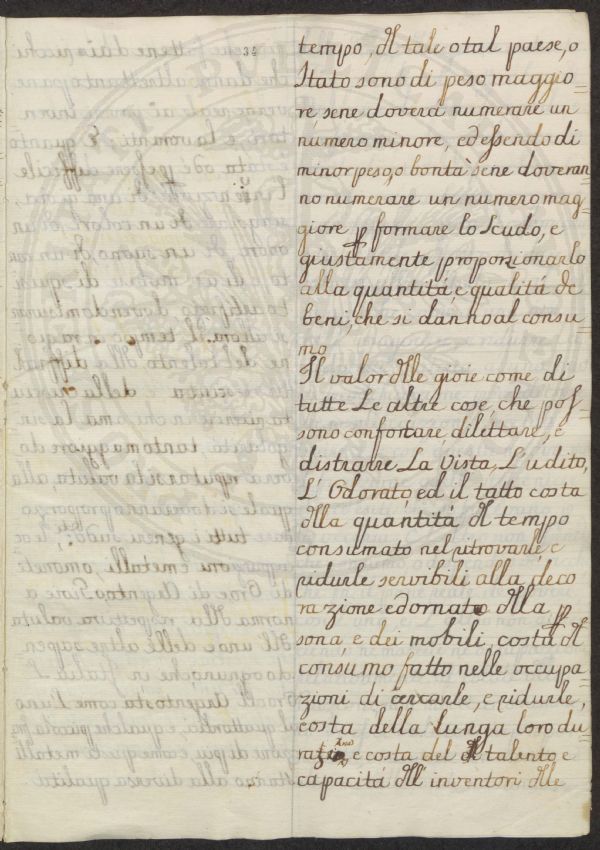 34
tempo, del tale o tal paese, o
Stato sono di peso maggio-
re, sene doverà numerare un
número minore, ed essendo di
minor peso, o bontà sene doveran
no numerare un numero mag-
giore p formare lo Scudo, e
giustamente proporzionarlo
alla quantitá, e qualitá de
beni, che si danno al consu-
mo
Il valor delle gioie come di
tutte Le altre cose, che pos-
sono confortare, dilettare, e
distrarre La Vista, L'udito,
L'Odorato, ed il tatto costa
della quantitá del tempo
consumato nel ritrovarle, e
ridurle servibili alla deco
razione ed ornato della p
sona, e dei mobili, costa del
consumo fatto nelle occupa
zioni di cercarle, e ridurle,
costa della lunga loro du
e costa del talento e
capacitá dell' inventori delle